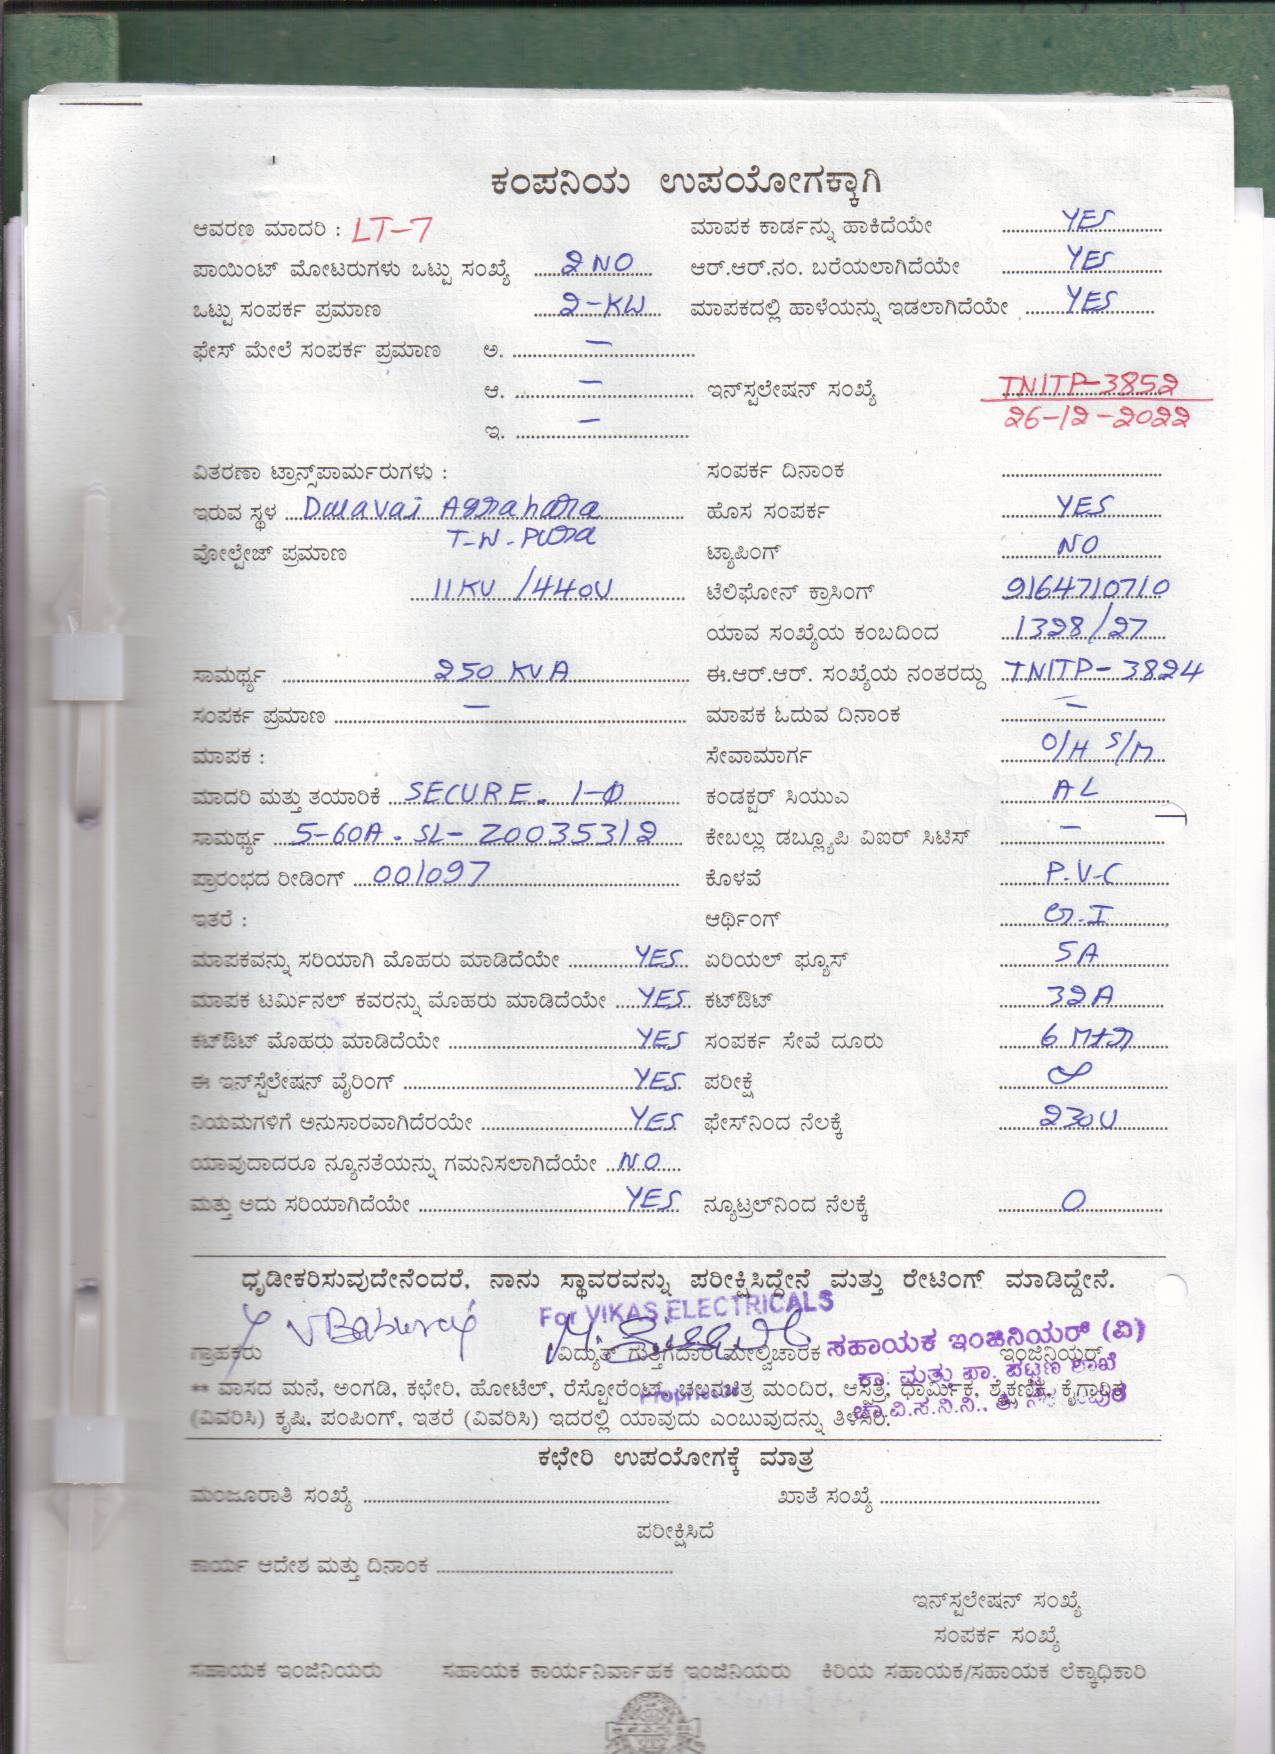 ಕಂಪನಿಯ ಉಪಯೋಗಕ್ಕಾಗಿ
ಆವರಣ ಮಾದರಿ : LT-7 ಮಾಪಕ ಕಾರ್ಡನ್ನು ಹಾಕಿದೆಯೇ YES
ಪಾಯಿಂಟ್ ಮೋಟರುಗಳು ಒಟ್ಟು ಸಂಖ್ಯೆ 2 NO ಆರ್.ಆರ್.ನಂ. ಬರೆಯಲಾಗಿದೆಯೇ YES
ಒಟ್ಟು ಸಂಪರ್ಕ ಪ್ರಮಾಣ 2-KW ಮಾಪಕದಲ್ಲಿ ಹಾಳೆಯನ್ನು ಇಡಲಾಗಿದೆಯೇ YES
ಫೇಸ್ ಮೇಲೆ ಸಂಪರ್ಕ ಪ್ರಮಾಣ ಅ. —
ಆ. — ಇನ್‌ಸ್ಟಲೇಷನ್ ಸಂಖ್ಯೆ TNITP-3852
ಇ. — 26-12-2022
ವಿತರಣಾ ಟ್ರಾನ್ಸ್‌ಪಾರ್ಮರುಗಳು : ಸಂಪರ್ಕ ದಿನಾಂಕ
ಇರುವ ಸ್ಥಳ Dalavai Agrahara ಹೊಸ ಸಂಪರ್ಕ YES
T-N-Pura
ವೋಲ್ಟೇಜ್ ಪ್ರಮಾಣ ಟ್ಯಾಪಿಂಗ್ NO
11KV /440V ಟೆಲಿಫೋನ್ ಕ್ರಾಸಿಂಗ್ 9164710710
ಯಾವ ಸಂಖ್ಯೆಯ ಕಂಬದಿಂದ 1328/27
ಸಾಮರ್ಥ್ಯ 250 KVA ಈ.ಆರ್.ಆರ್. ಸಂಖ್ಯೆಯ ನಂತರದ್ದು TNITP-3824
ಸಂಪರ್ಕ ಪ್ರಮಾಣ — ಮಾಪಕ ಓದುವ ದಿನಾಂಕ —
ಮಾಪಕ : ಸೇವಾಮಾರ್ಗ O/H S/M
ಮಾದರಿ ಮತ್ತು ತಯಾರಿಕೆ SECURE. 1-Φ ಕಂಡಕ್ಟರ್ ಸಿಯುಎ AL
ಸಾಮರ್ಥ್ಯ 5-60A. SL- Z0035312 ಕೇಬಲ್ಲು ಡಬ್ಲ್ಯೂಪಿ ವಿಐರ್ ಸಿಟಿಸ್ —
ಪ್ರಾರಂಭದ ರೀಡಿಂಗ್ 001097 ಕೊಳವೆ P.V.C
ಇತರೆ : ಆರ್ಥಿಂಗ್ G.I
ಮಾಪಕವನ್ನು ಸರಿಯಾಗಿ ಮೊಹರು ಮಾಡಿದೆಯೇ YES ಏರಿಯಲ್ ಫ್ಯೂಸ್ 5A
ಮಾಪಕ ಟರ್ಮಿನಲ್ ಕವರನ್ನು ಮೊಹರು ಮಾಡಿದೆಯೇ YES ಕಟ್‌ಔಟ್ 32A
ಕಟ್‌ಔಟ್ ಮೊಹರು ಮಾಡಿದೆಯೇ YES ಸಂಪರ್ಕ ಸೇವೆ ದೂರು 6 Mtr
ಈ ಇನ್‌ಸ್ಟೆಲೇಷನ್ ವೈರಿಂಗ್ YES ಪರೀಕ್ಷೆ ∞
ನಿಯಮಗಳಿಗೆ ಅನುಸಾರವಾಗಿದೆರಯೇ YES ಫೇಸ್‌ನಿಂದ ನೆಲಕ್ಕೆ 230V
ಯಾವುದಾದರೂ ನ್ಯೂನತೆಯನ್ನು ಗಮನಿಸಲಾಗಿದೆಯೇ NO
ಮತ್ತು ಅದು ಸರಿಯಾಗಿದೆಯೇ YES ನ್ಯೂಟ್ರಲ್‌ನಿಂದ ನೆಲಕ್ಕೆ 0
ಧೃಡೀಕರಿಸುವುದೇನೆಂದರೆ, ನಾನು ಸ್ಥಾವರವನ್ನು ಪರೀಕ್ಷಿಸಿದ್ದೇನೆ ಮತ್ತು ರೇಟಿಂಗ್ ಮಾಡಿದ್ದೇನೆ.
For VIKAS ELECTRICALS
ಸಹಾಯಕ ಇಂಜಿನಿಯರ್ (ವಿ)
ಗ್ರಾಹಕರು ವಿದ್ಯುತ್ ಗುತ್ತಿಗೆದಾರ ಮೇಲ್ವಿಚಾರಕ ಇಂಜಿನಿಯರ್
ಕಾ. ಮತ್ತು ಪಾ. ಪಟ್ಟಣ ಶಾಖೆ
Proprietor
** ವಾಸದ ಮನೆ, ಅಂಗಡಿ, ಕಛೇರಿ, ಹೋಟೆಲ್, ರೆಸ್ಟೋರೆಂಟ್, ಚಲನಚಿತ್ರ ಮಂದಿರ, ಆಸ್ಪತ್ರೆ, ಧಾರ್ಮಿಕ, ಶೈಕ್ಷಣಿಕ, ಕೈಗಾರಿಕೆ
ಚಾ.ವಿ.ಸ.ನಿ.ನಿ.,
(ವಿವರಿಸಿ) ಕೃಷಿ, ಪಂಪಿಂಗ್, ಇತರೆ (ವಿವರಿಸಿ) ಇದರಲ್ಲಿ ಯಾವುದು ಎಂಬುವುದನ್ನು ತಿಳಿಸಿರಿ.
ಕಛೇರಿ ಉಪಯೋಗಕ್ಕೆ ಮಾತ್ರ
ಮಂಜೂರಾತಿ ಸಂಖ್ಯೆ ಖಾತೆ ಸಂಖ್ಯೆ
ಪರೀಕ್ಷಿಸಿದೆ
ಕಾರ್ಯ ಆದೇಶ ಮತ್ತು ದಿನಾಂಕ
ಇನ್‌ಸ್ಟಲೇಷನ್ ಸಂಖ್ಯೆ
ಸಂಪರ್ಕ ಸಂಖ್ಯೆ
ಸಹಾಯಕ ಇಂಜಿನಿಯರು ಸಹಾಯಕ ಕಾರ್ಯನಿರ್ವಾಹಕ ಇಂಜಿನಿಯರು ಕಿರಿಯ ಸಹಾಯಕ/ಸಹಾಯಕ ಲೆಕ್ಕಾಧಿಕಾರಿ